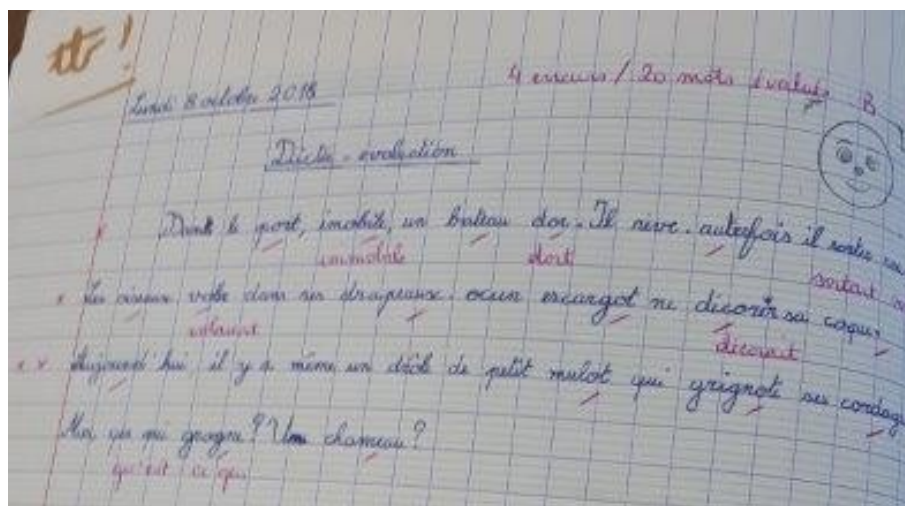 tb !
4 erreurs / 20 mots évalués B
Lundi 8 octobre 2018
Dictée - évaluation
Dans le port, imobile, un bateau dor. Il rêve. autrefois il
immobile dort sortait
Les oiseaux vole dans ses drapeaux. ocun escargot ne décorer sa coque,
volaient décorait
Aujourd'hui, il y a même un drôle de petit mulot qui grignote ses cordag
qui grogne? Un chameau?
qu'est ce qui